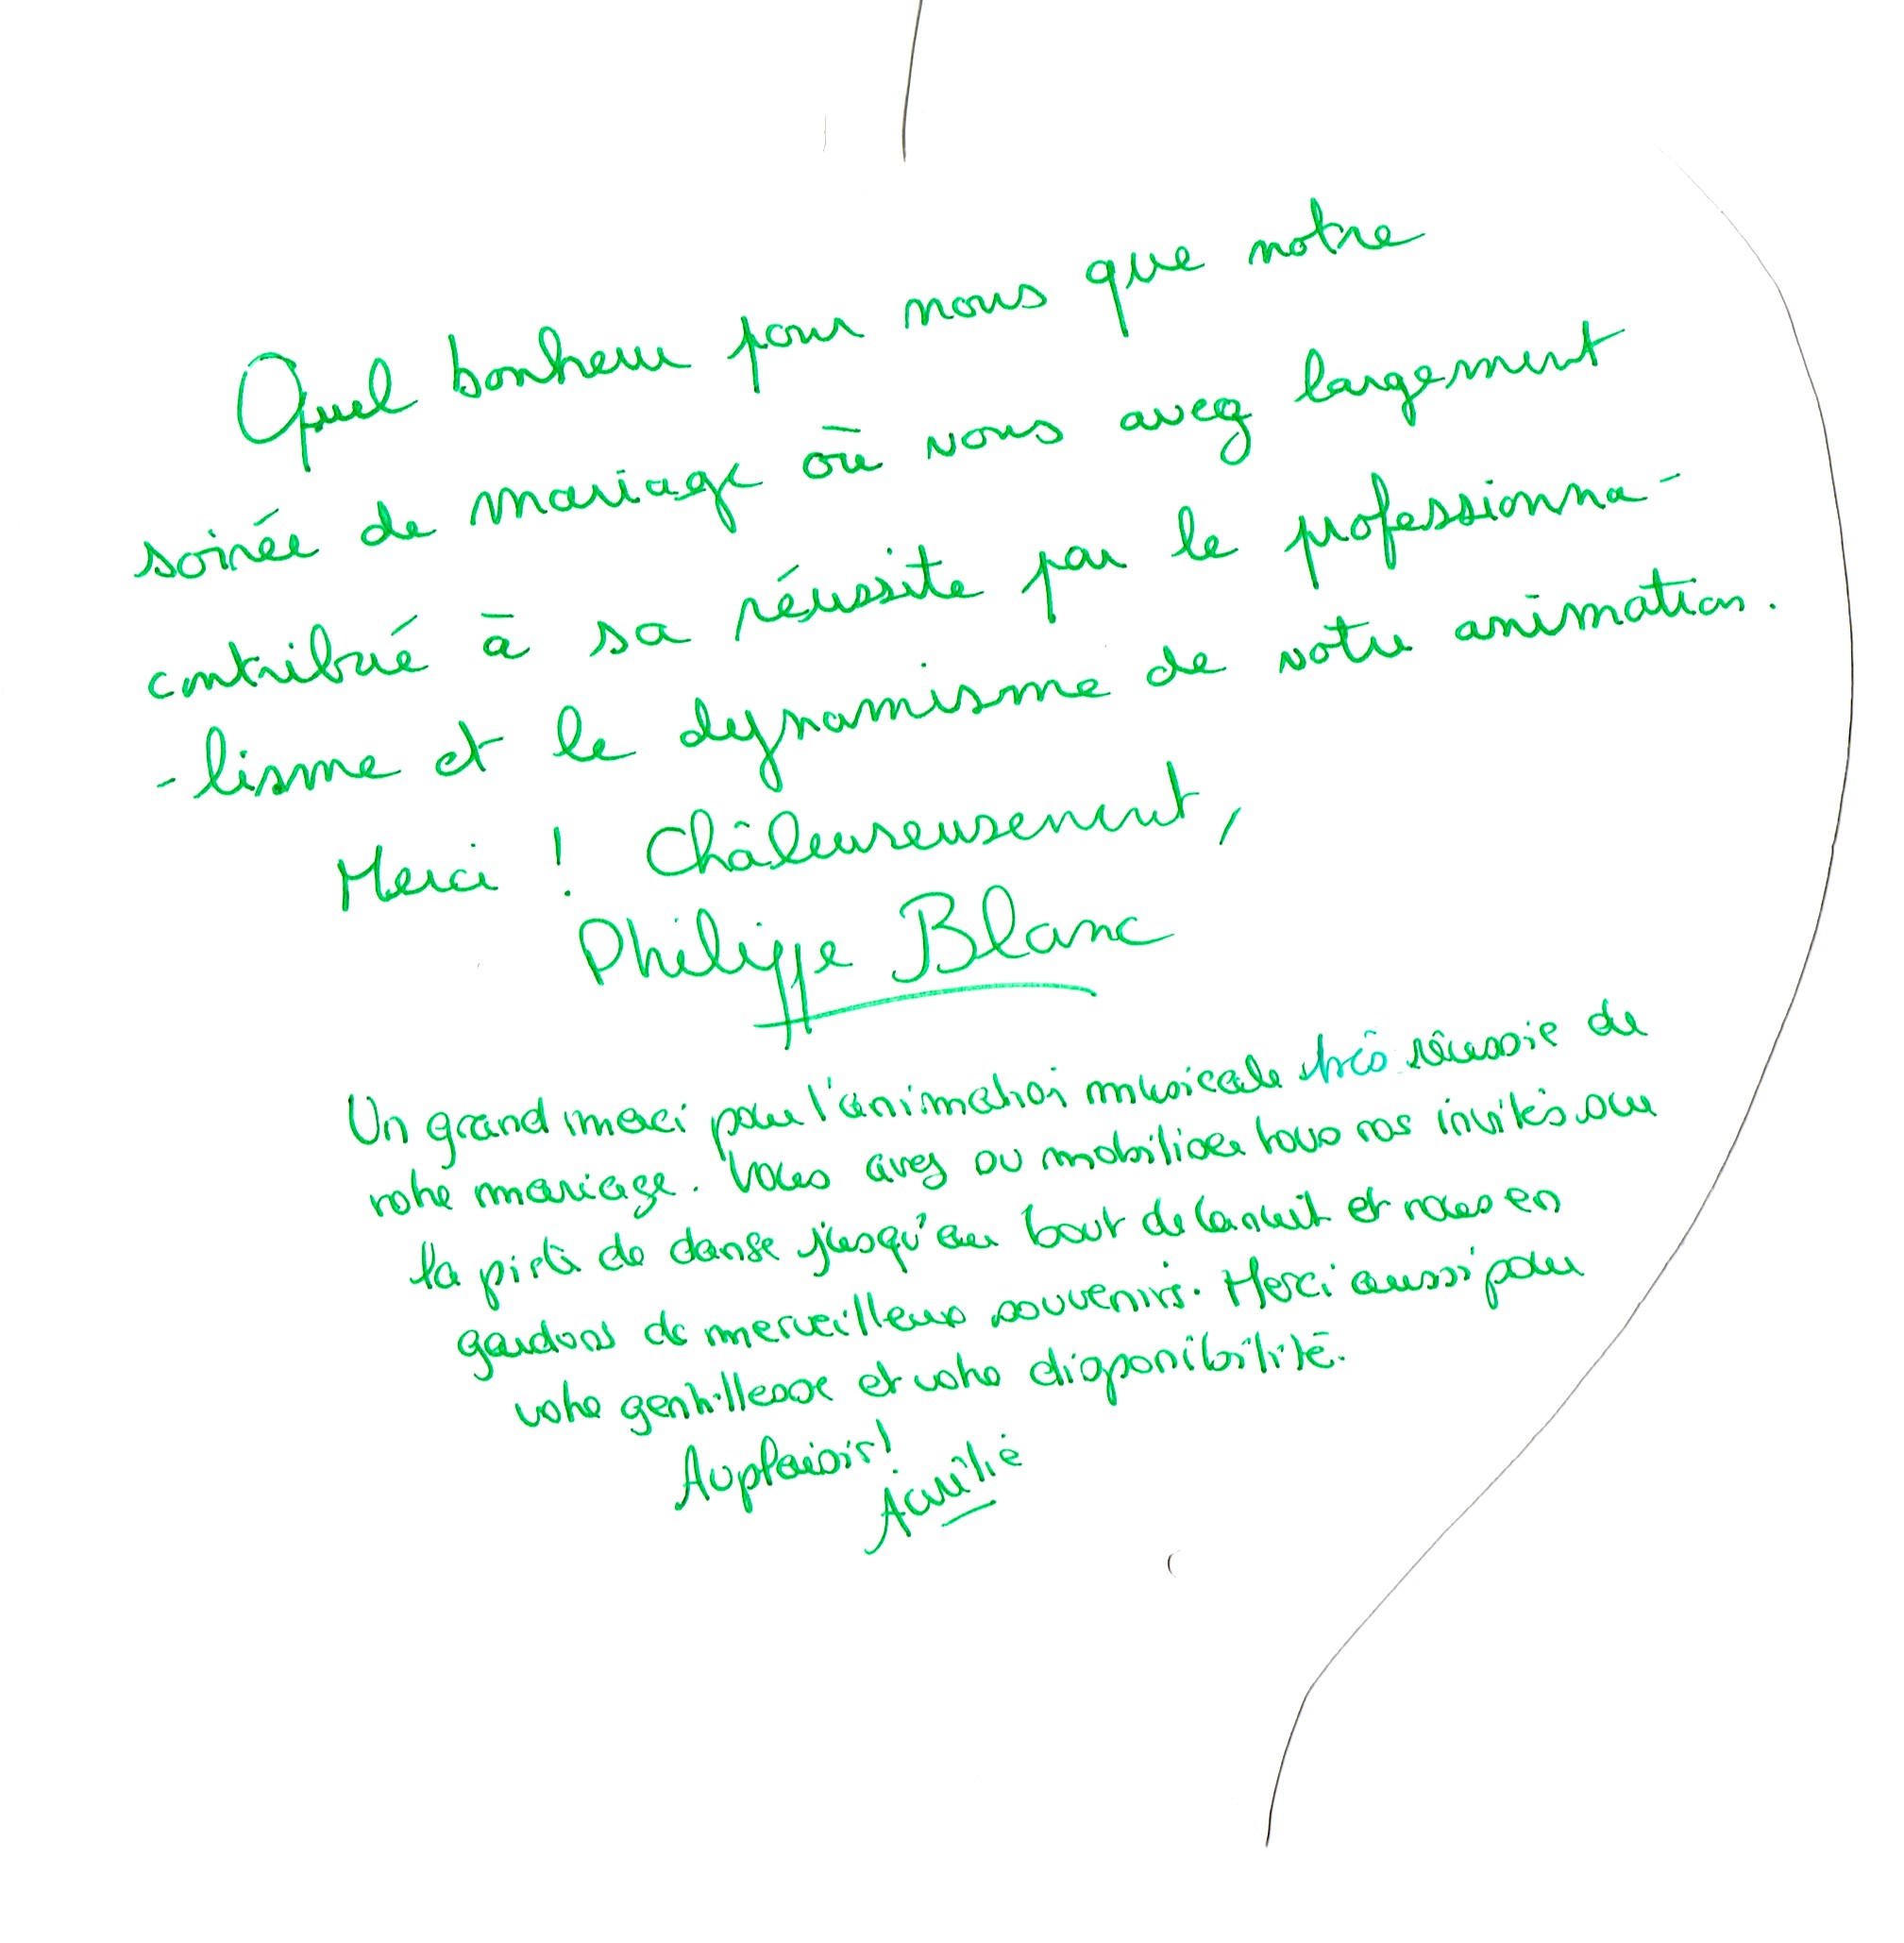 Quel bonheur pour nous que notre
soirée de mariage où vous avez largement
contribué à sa réussite par le professionna-
-lisme et le dynamisme de votre animation.
Merci ! Châleureusement,
Philippe Blanc
Un grand merci pour l'animation musicale très réussie de
notre mariage. Vous avez su mobiliser tous nos invités sur
la piste de danse jusqu'au bout de la nuit et nous en
gardons de merveilleux souvenirs. Merci aussi pour
votre gentillesse et votre disponibilité.
Au plaisir !
Aurélie